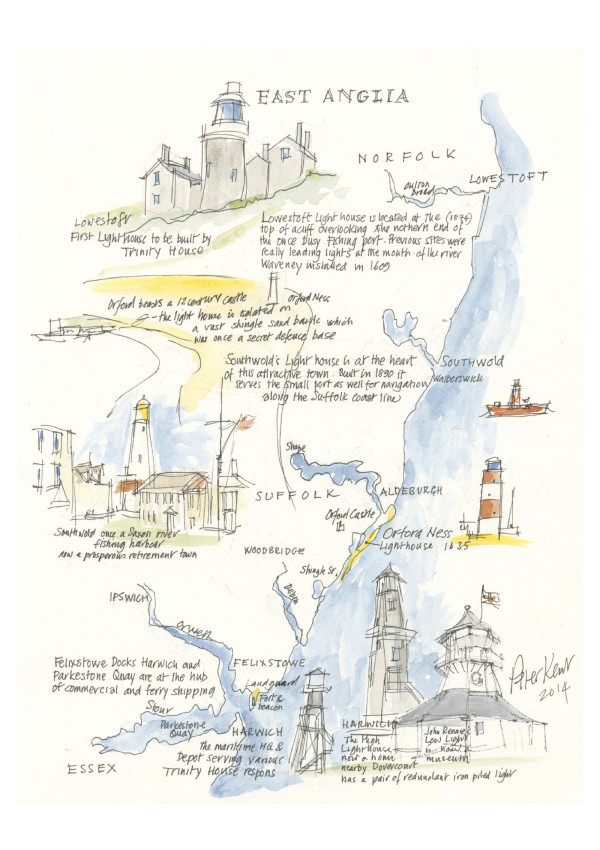 EAST ANGLIA
NORFOLK
Oulton
Broad
LOWESTOFT
Lowestoft
First Lighthouse to be built by
Trinity House
Lowestoft Light house is located at the (1874)
top of a cliff overlooking the nothern end of
the once busy fishing port. Previous sites were
really leading lights at the mouth of the river
Waveney installed in 1609
Orford boasts a 12 century castle
Orford Ness
- the light house is isolated on
a vast shingle sand bank which
was once a secret defence base
Southwold's Light house is at the heart
of this attractive town. Built in 1890 it
serves the small port as well for navigation
along the Suffolk coast line
SOUTHWOLD
Walberswick
Snape
SUFFOLK
ALDEBURGH
Orford Castle
Orford Ness
Lighthouse 1635
Southwold once a Saxon river
fishing harbour
and a prosperous retirement town
WOODBRIDGE
Shingle St.
Deben
IPSWICH
Orwell
FELIXSTOWE
Landguard
Fort &
beacon
Felixstowe Docks Harwich and
Parkestone Quay are at the hub
of commercial and ferry shipping
Stour
Parkestone
Quay
HARWICH
The maritime HQ &
Depot serving various
Trinity House respons
ESSEX
HARWICH
The High
Lighthouse
now a home
nearby Dovercourt
has a pair of redundant iron piled light
John Rennie's
Low Light
is now a
museum
Peter Kent
2014